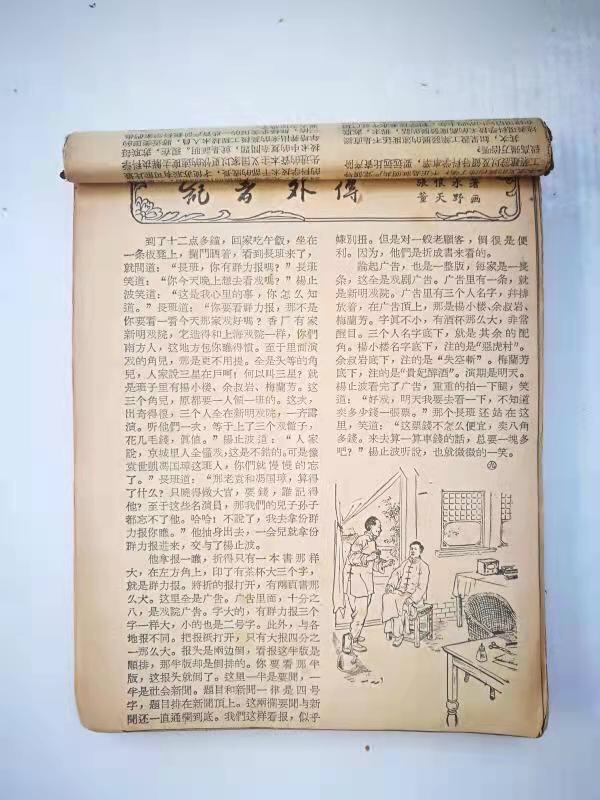 記者外傳
張恨水著
董天野画
到了十二点多鐘，回家吃午飯，坐在
一条板凳上，攔門晒着，看到長班来了，
就問道：“長班，你有群力报嗎？”長班
笑道：“你今天晚上想去看戏嗎？”楊止
波笑道：“这是我心里的事，你怎么知
道。”長班道：“你要看群力报，那不是
你要看一看今天那家戏好嗎？香厂有家
新明戏院，它造得和上海戏院一样，你們
南方人，这地方包你瞧得慣。至于里面演
戏的角兒，那是更不用提。全是头等的角
兒，人家說三星在戶啊！何以叫三星？就
是班子里有楊小楼、余叔岩、梅蘭芳。这
三个角兒，原都要一人領一班的。这次，
出奇得很，三个人全在新明戏院，一齐露
演。听他們一次，等于上了三个戏館子，
花几毛錢，眞值。”楊止波道：“人家
說，京城里人全懂戏，这是不錯的。可是像
袁世凱馮国璋这班人，你們就慢慢的忘
了。”長班道：“那老袁和馮国璋，算得
了什么？只曉得做大官，要錢，誰記得
他？至于这些名演員，那我們的兒子孙子
都忘不了他。哈哈！不說了，我去拿份群
力报你瞧。”他抽身出去，一会兒就拿份
群力报进来，交与了楊止波。
他拿报一瞧，折得只有一本書那样
大，在左方角上，印了有茶杯大三个字，
就是群力报。將折的报打开，有兩頁書那
么大。这里全是广告。广告里面，十分之
八，是戏院广告。字大的，有群力报三个
字一样大，小的也是二号字。此外，与各
地报不同。把报紙打开，只有大报四分之
一那么大。报头是兩边倒，看报这半版是
順排，那半版却是倒排的。你要看那半
版，这报头就倒了。这里一半是要聞，一
半是社会新聞。題目和新聞一律是四号
字，題目排在新聞頂上。这兩欄要聞与新
聞还一直通欄到底。我們这样看报，似乎
嫌別扭。但是对一般老顧客，倒很是便
利。因为，他們是折成書来看的。
論起广告，也是一整版，每家是一長
条，这全是戏剧广告。广告里有一条，就
是新明戏院。广告里有三个人名字，幷排
放着，在广告頂上，那是楊小楼、余叔岩、
梅蘭芳。字眞不小，有酒杯那么大，非常
醒目。三个人名字底下，就是其余的配
角。楊小楼名字底下，注的是“惡虎村”。
余叔岩底下，注的是“失空斬”。梅蘭芳
底下，注的是“貴妃醉酒”。演期是明天。
楊止波看完了广告，重重的拍一下腿，笑
道：“好戏，明天我要去看一下，不知道
卖多少錢一張票。”那个長班还站在这
里，笑道：“这票錢不怎么便宜，卖八角
多錢。来去算一算車錢的話，总要一塊多
吧？”楊止波听說，也就微微的一笑。